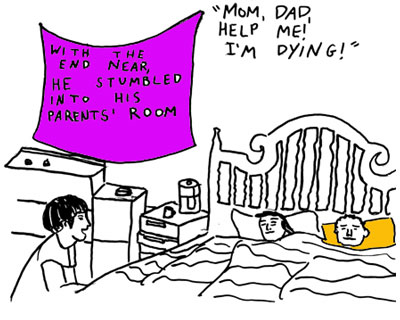 WITH THE
END NEAR,
HE STUMBLED
INTO HIS
PARENTS' ROOM
"MOM, DAD,
HELP ME!
I'M DYING!"